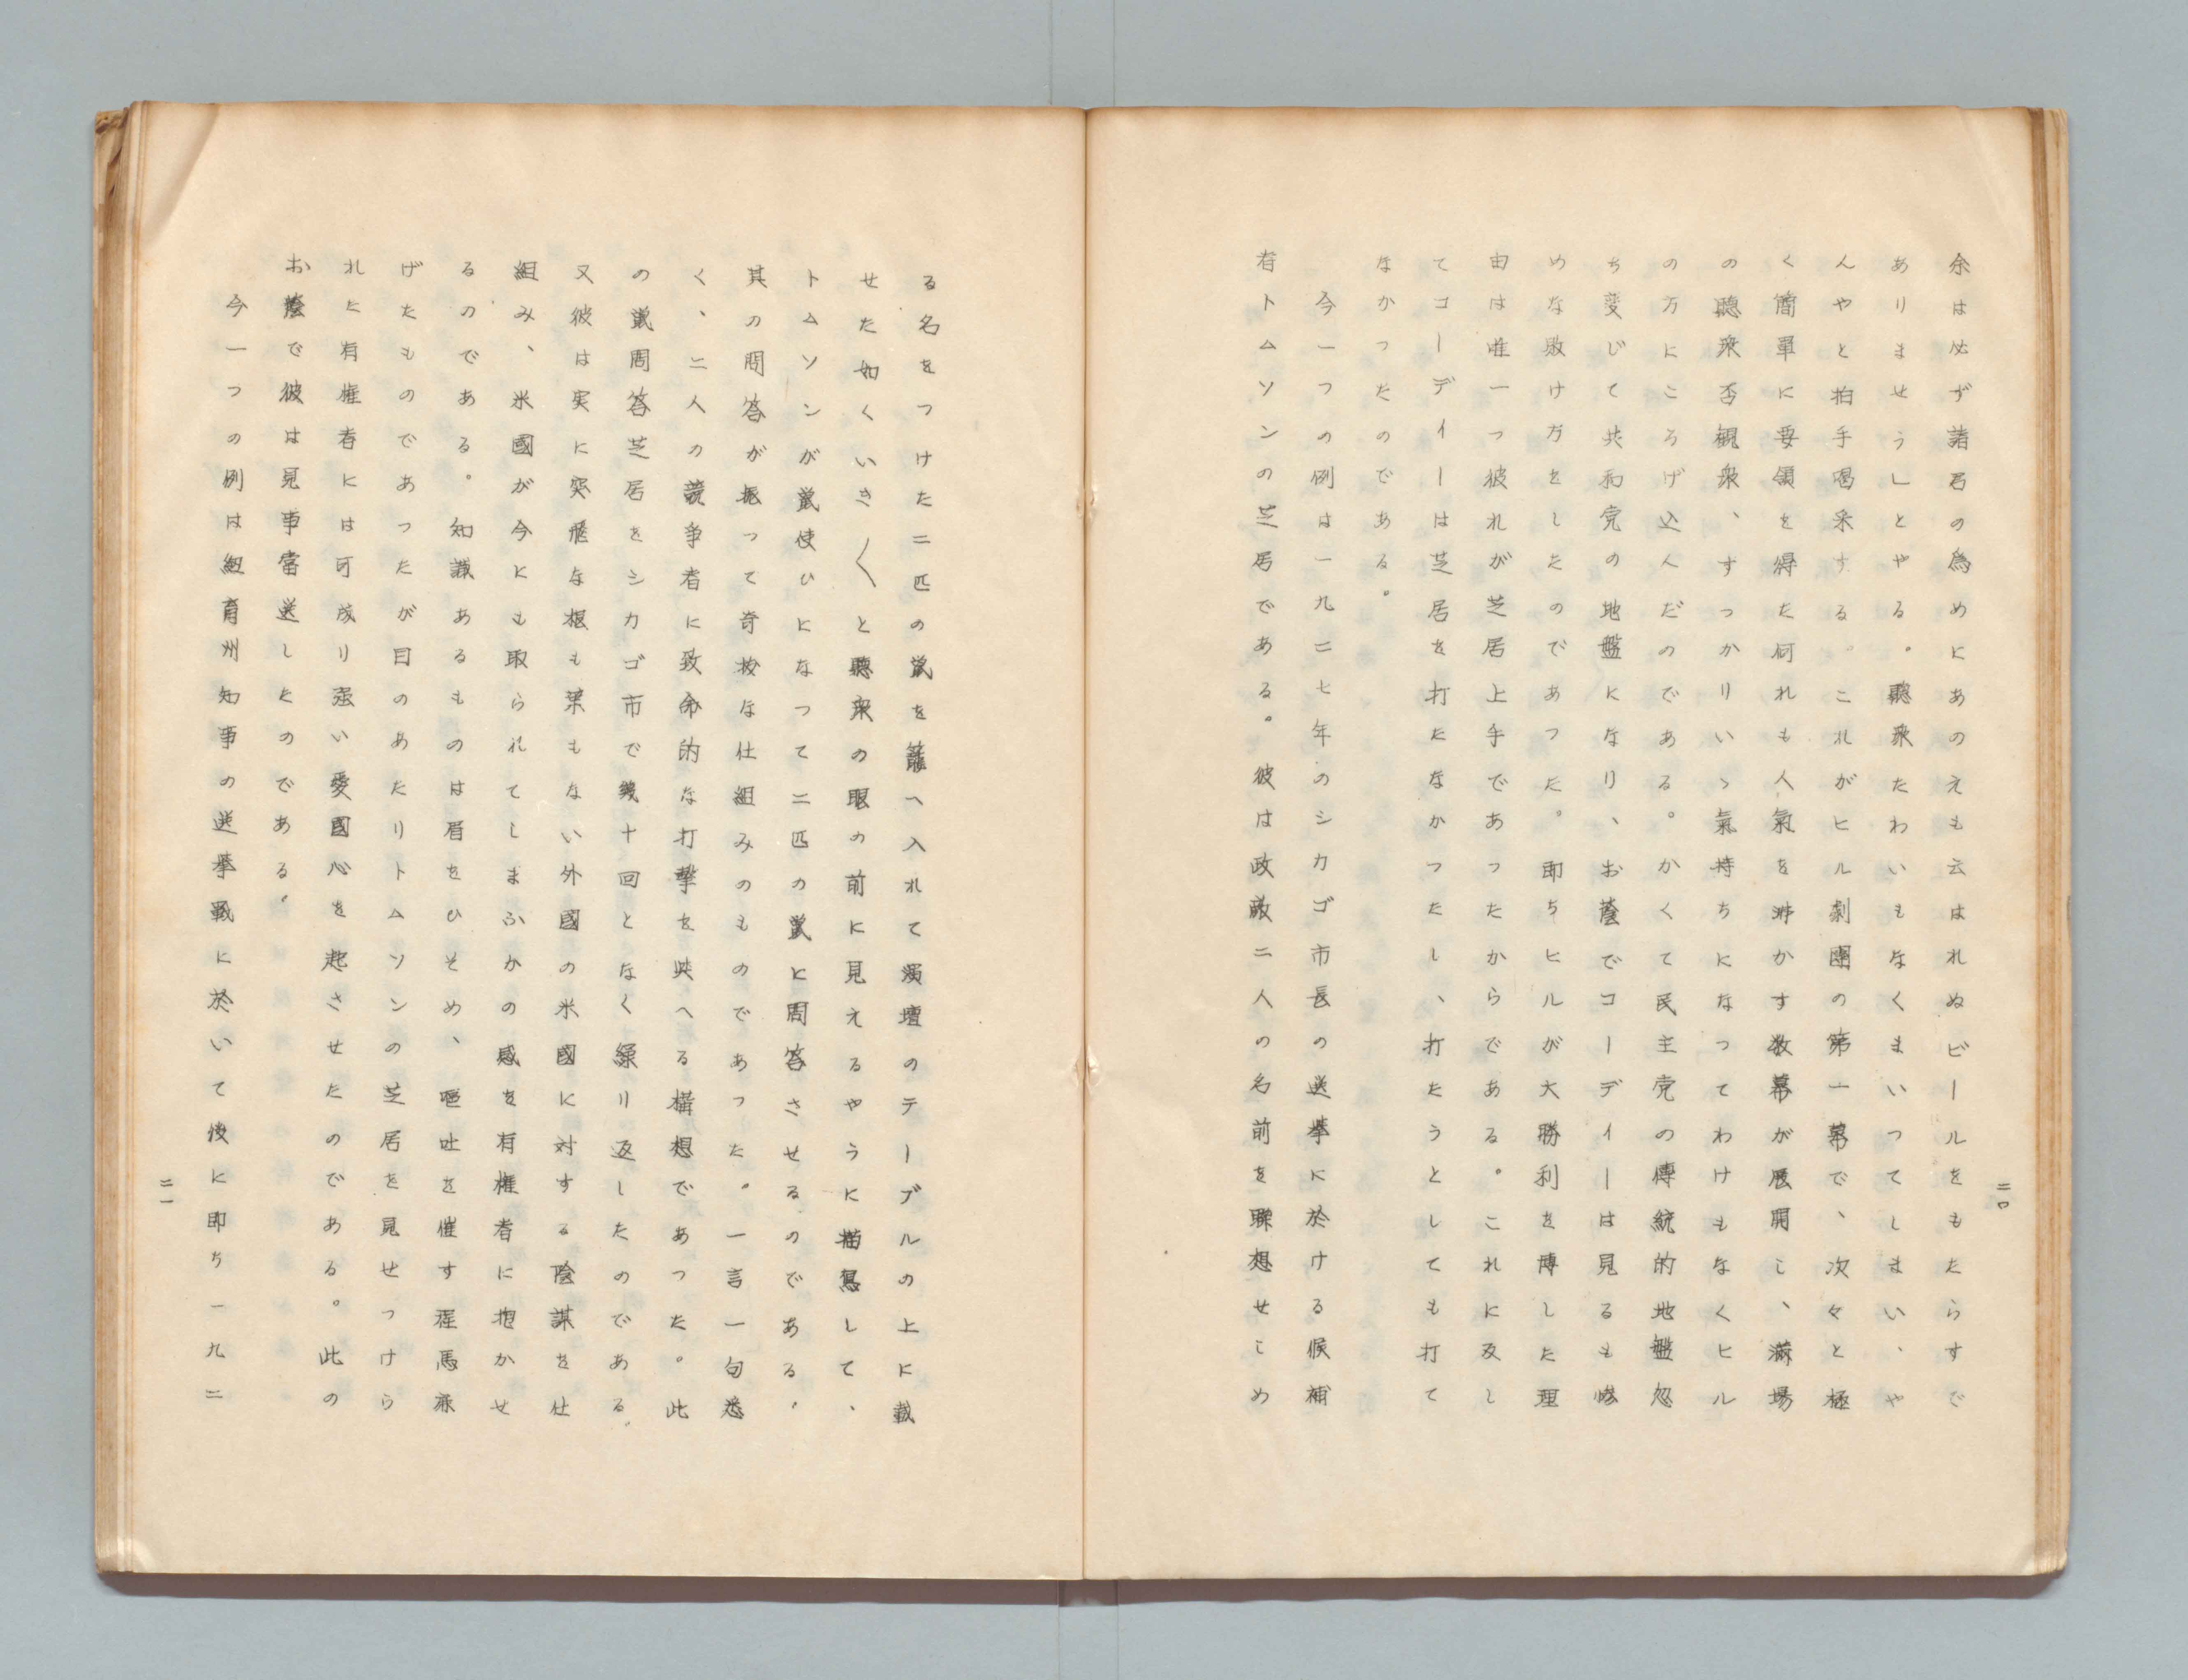 余は必ず諸君の為めにあのえも云はれぬビールをもたらすで
ありませう」とやる。聽衆たわいもなくまいつてしまい、や
んやと拍手喝采する。これがヒル劇團の第一幕で、次々と極
く簡單に要領を得た何れも人氣を沸かす数幕が展開し、満場
の聽衆否観衆、すつかりいゝ氣持ちになつてわけもなくヒル
の方にころげ込んだのである。かくて民主党の傳統的地盤忽
ち変じて共和党の地盤になり、お蔭でコーデイーは見るも惨
めな敗け方をしたのであつた。即ちヒルが大勝利を博した理
由は唯一つ彼れが芝居上手であつたからである。これに反し
てコーデイーは芝居を打たなかつたし、打たうとしても打て
なかつたのである。
今一つの例は一九二七年のシカゴ市長の送挙に於ける候補
者トムソンの芝居である。彼は政敵二人の名前を聯想せしめ
二〇
る名をつけた二匹の鼠を籠へ入れて演壇のテーブルの上に載
せた如くいき〱と聽衆の眼の前に見えるやうに描寫して、
トムソンが鼠使ひになつて二匹の鼠に問答させるのである、
其の問答が振つて奇抜な仕組みのものであつた。一言一句悉
く、二人の競争者に致命的な打撃を與へる構想であつた。此
の鼠問答芝居をシカゴ市で幾十回となく繰り返したのである、
又彼は実に突飛な根も葉もない外國の米國に対する陰謀を仕
組み、米國が今にも取られてしまふかの感を有権者に抱かせ
るのである。知識あるものは眉をひそめ、嘔吐を催す程馬鹿
げたものであつたが目のあたりトムソンの芝居を見せつけら
れた有権者には可成り强い愛國心を起させたのである。此の
お蔭で彼は見事當送したのである、
今一つの例は紐育州知事の送挙戰に於いて後に即ち一九二
二一